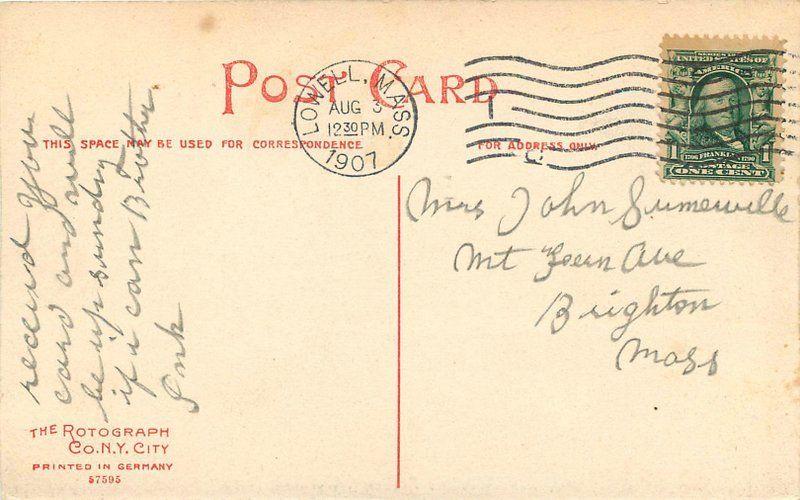 POST CARD
LOWELL, MASS.
AUG 3
12 30 PM
1907
SERIES 1902
UNITED STATES OF
AMERICA
1706 FRANKLIN 1790
1 POSTAGE 1
ONE CENT
THIS SPACE MAY BE USED FOR CORRESPONDENCE
FOR ADDRESS ONLY.
receivd your
card and will
be up sunday
if i can Brother
Mrs John Sumerville
Mt Ave
Brighton
Mass
THE ROTOGRAPH
CO. N.Y. CITY
PRINTED IN GERMANY
57595